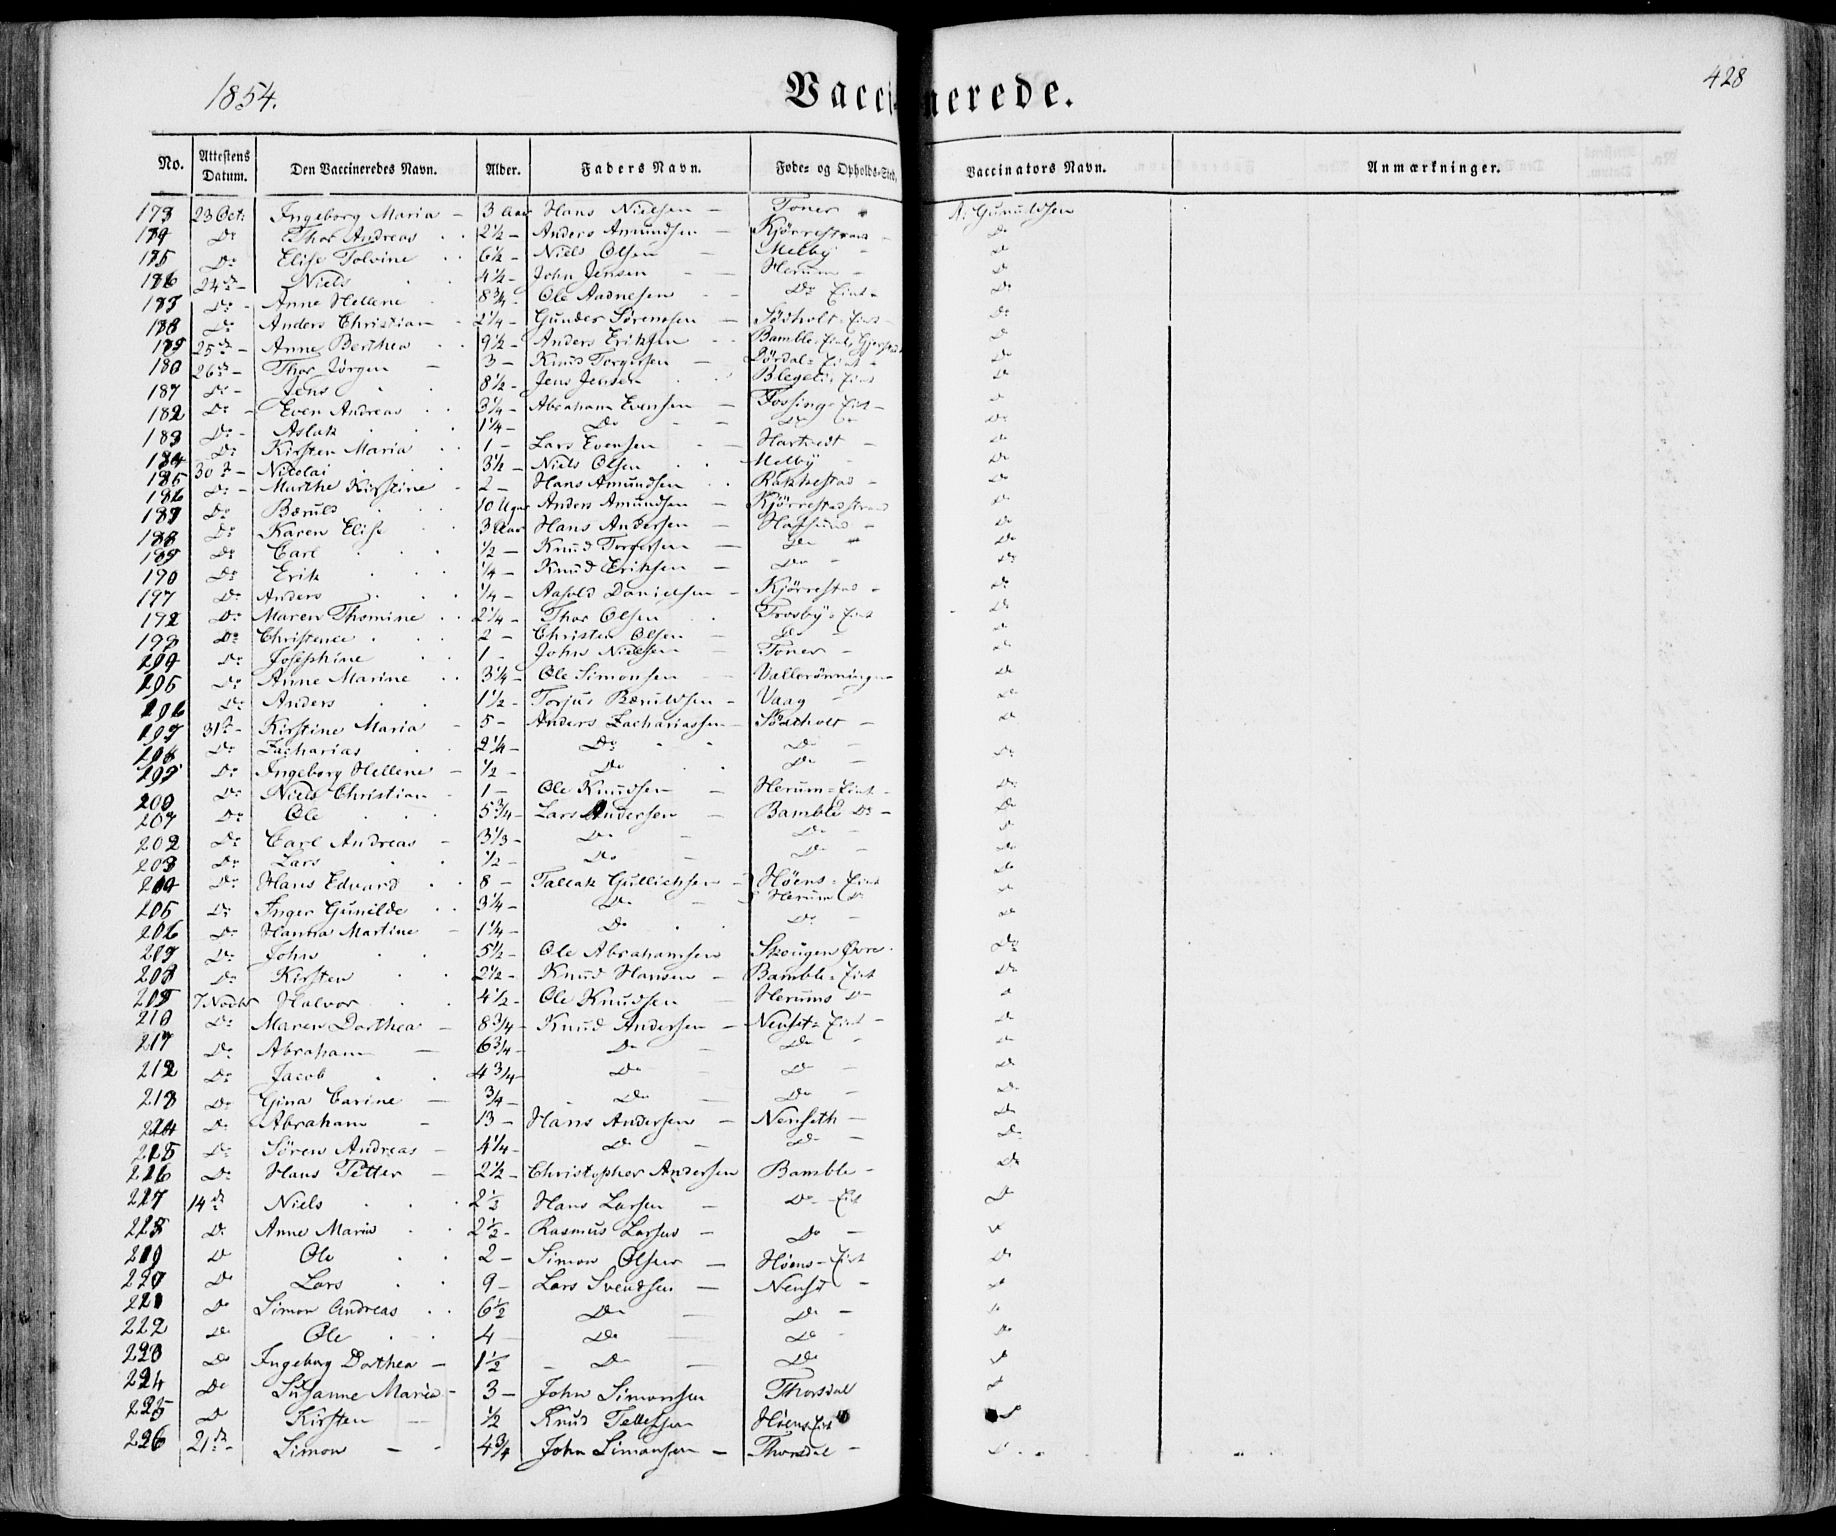 1854.
Vaccinerede.
428
No. Attestens Datum. Den Vaccineredes Navn. Alder. Faders Navn. Føde- og Opholds-Sted. Vaccinators Navn. Anmærkninger.
173 23 Oct: Ingeborg Maria – 3 Aar Hans Nielsen – Toner A. Gunuldsen
174 Do Thor Andreas 2½ – Anders Amundsen – Kjörrestrand Do
175 Do Elise Tolvine 6½ – Niels Olsen – Melby Do
176 24de – Niels 4½ – John Jensen – Herum Do
177 Do Anne Hellene 8¾ – Ole Aadnesen – Do Eint Do
178 Do Anders Christian 2¼ – Gunder Sörensen – Södholt Eint Do
179 25de – Anne Berthea 9½ – Anders Eriksen Bamble Eint Do
180 26de – Thor Jörgen – 3 – Knud Torgersen – Dördal Eint Do
181 Do Jens 8½ – Jens Jensen Eint Do
182 Do Even Andreas 3¼ – Abraham Evensen – Fossing Eint Do
183 Do Aslak 1¼ – Do Do Do
184 Do Kirsten Maria 1 – Lars Evensen – Hartvedt Do
185 30de – Nicolai 3½ – Niels Olsen Melby Do
186 Do Marthe Kirstine 2 – Hans Amundsen Rakkestad Do
187 Do Bæruld 10 Uger Anders Amundsen – Kjörrestadstrand Do
188 Do Karen Elise 3 Aar Hans Andersen – Hafsund Do
189 Do Carl ½ – Knud Torgersen – Do Do
190 Do Erik ¼ – Knud Eriksen – Do Do
191 Do Anders ¼ – Aasold Danielsen – Kjörrestad Do
192 Do Maren Thomine 2¼ – Thor Olsen Trosby Eint Do
193 Do Christence 2 – Christen Olsen – Do Do
194 Do Josephine 1 – John Nielsen – Toner Do
195 Do Anne Marine 3¼ – Ole Simonsen – Vallerönningen Do
196 Do Anders 1½ – Torjus Bæruldsen – Vaag Do
197 31te – Kirstine Maria – 5 – Anders Zachariassen – Södtholt Do
198 Do Zacharias 2¼ – Do Do Do
199 Do Ingeborg Hellene – ½ – Do Do Do
200 Do Niels Christian 1 – Ole Knudsen – Herum Eint Do
201 Do Ole 5¾ – Lars Andersen – Bamble Do Do
202 Do Carl Andreas – 3⅓ – Do – Do Do
203 Do Lars ½ – Do – Do Do
204 Do Hans Edvard 8 – Tallak Gullichsen – Höens Eint Do
205 Do Inger Gunilde 3¼ – Do – Herum Do Do
206 Do Hanna Martine – 1¼ – Do Do Do
207 Do John 5½ – Ole Abrahamsen Skougen Øvre Do
208 Do Kirsten 2½ – Knud Hansen – Bamble Eint Do
209 7 Novbr Halvor 4½ – Ole Knudsen – Herums Do Do
210 Do Maren Dorthea – 8¾ – Knud Andersen – Nenset Eint Do
211 Do Abraham – 6¾ – Do – Do Do
212 Do Jacob 4¾ – Do – Do Do
213 Do Gina Carine – ¾ – Do – Do Do
214 Do Abraham – 13 – Hans Andersen – Nenseth Do
215 Do Sören Andreas – 4¼ – Do – Do Do
216 Do Hans Petter – 2½ – Christopher Andersen Bamble Do
217 14de Niels 2½ Hans Larsen – Do Eint Do
218 Do Anne Maria 2½ – Rasmus Larsen – Do Do
219 Do Ole 2 – Simon Olsen – Höens Eint Do
220 Do Lars 9 – Lars Svendsen – Nenset Do
221 Do Simon Andreas 6½ Do – Do Do
222 Do Ole 4 – Do – Do Do
223 Do Ingeborg Dorthea – 1½ – Do – Do Do
224 Do Susanne Maria – 3 – John Simonsen Thorsdal Do
225 Do Kirsten – ½ Knud Tellefsen Höens Eint Do
226 21de – Simon – 4¾ John Simonsen – Thorsdal Do